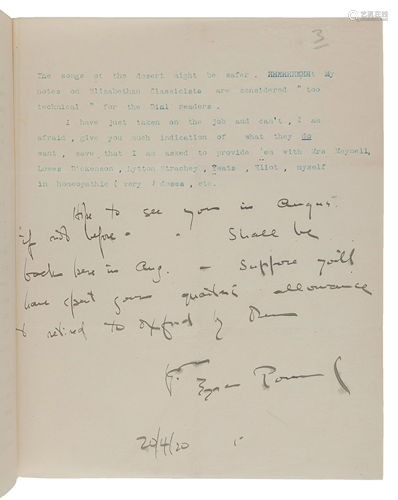 3
The songs of the desert might be safer. My
notes on Elizabethan Classicists are considered "too
technical" for the Dial readers.
I have just taken on the job and can't, I am
afraid, give you much indication of what they do
want, save that I am asked to provide 'em with Mrs Meynell,
Lowes Dickenson, Lytton Strachey, Yeats, Eliot, myself
in homeopathic (very) doses, etc.
Hope to see you in August
if not before - . Shall be
back here in Aug. - Suppose you'll
have spent your quarter's allowance
& retired to Oxford by then
Ezra Pound
20/4/20